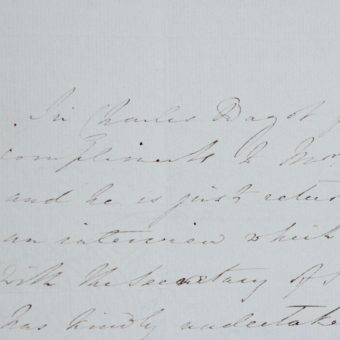 Sir Charles Bagot
compliments to
and he is just
an interview which
with the Secretary of
has kindly